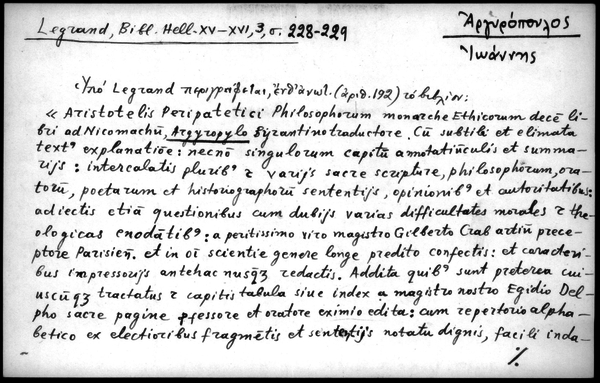 Legrand, Bibl. Hell. XV–XVI, 3, σ. 228-229
Ἀργυρόπουλος
Ἰωάννης
Ὑπό Legrand περιγράφεται, ἐνθ' ἀνωτ. (ἀριθ. 192) τό βιβλίον:
« Aristotelis Peripatetici Philosophorum monarche Ethicorum decē li-
bri ad Nicomachū, Argyropylo Byzantino traductore. Cū subtili et elimata
text⁹ explanatiōe: necnō singulorum capitū annotatiūculis et summa-
rijs: intercalatis plurib⁹ ⁊ varijs sacre scripture, philosophorum, ora-
torū, poetarum et historiographorū sententijs, opinionib⁹ et autoritatibus:
adiectis etiā questionibus cum dubijs varias difficultates morales ⁊ the-
ologicas enodātib⁹: a peritissimo viro magistro Gilberto Crab artiū prece-
ptore Parisieñ. et in oī scientie genere longe predito confectis: et caracteri-
bus impressorijs antehac nusq̄ȝ redactis. Addita quib⁹ sunt preterea cui-
uscūqȝ tractatus ⁊ capitis tabula siue index a magistro nostro Egidio Del-
pho sacre pagine pfessore et oratore eximio edita: cum repertorio alpha-
betico ex electioribus fragmētis et sententijs notatu dignis, facili inda-
٪.